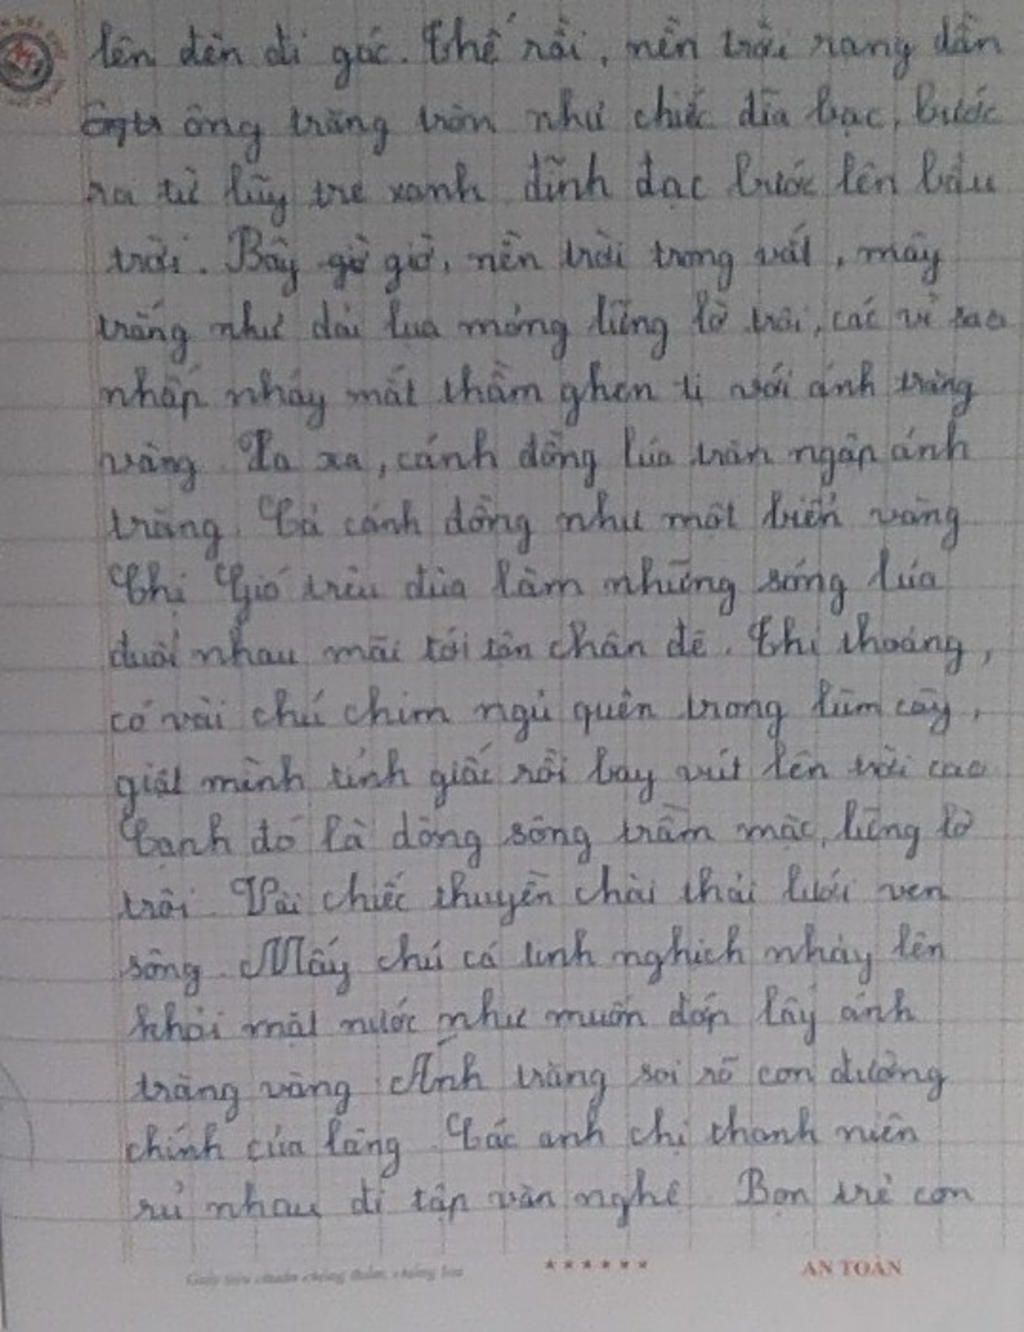 lên đèn đi gác. Thế rồi, nền trời rạng dần
ông trăng tròn như chiếc đĩa bạc, bước
ra từ lũy tre xanh đĩnh đạc bước lên bầu
trời. Bây giờ, nền trời trong vắt, mây
trắng như dải lụa mỏng lững lờ trôi, các vì sao
nhấp nháy mắt thầm ghen tị với ánh trăng
vàng. Xa xa, cánh đồng lúa tràn ngập ánh
trăng. Cả cánh đồng như một biển vàng
Chị Gió trêu đùa làm những sóng lúa
đuổi nhau mãi tới tận chân đê. Thi thoảng,
có vài chú chim ngủ quên trong lùm cây,
giật mình tỉnh giấc rồi bay vút lên trời cao
Cạnh đó là dòng sông trầm mặc, lững lờ
trôi. Vài chiếc thuyền chài thải lưới ven
sông. Mấy chú cá tinh nghịch nhảy lên
khỏi mặt nước như muốn đớp lấy ánh
trăng vàng. Ánh trăng soi rõ con đường
chính của làng. Các anh chị thanh niên
rủ nhau đi tập văn nghệ. Bọn trẻ con
AN TOÀN